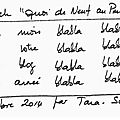 ch "Quoi de Neuf au Pa
mois blabla blabla
votre blabla blabla
blog blabla blabl
aussi blabla blabl
bre 2014 par Tara. S